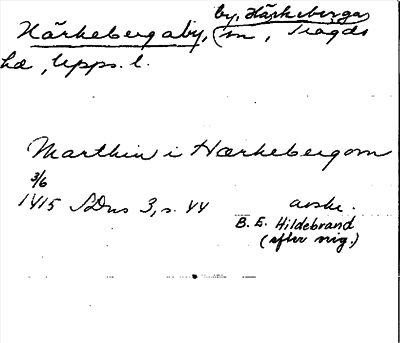 Härkebergaby, by, Härkeberga
sn, Trögds
hd, Upps. l.
Marthin i Hærkebergom
3/6
1415 SDns 3, s. 44
avskr.
B. E. Hildebrand
(efter orig.)